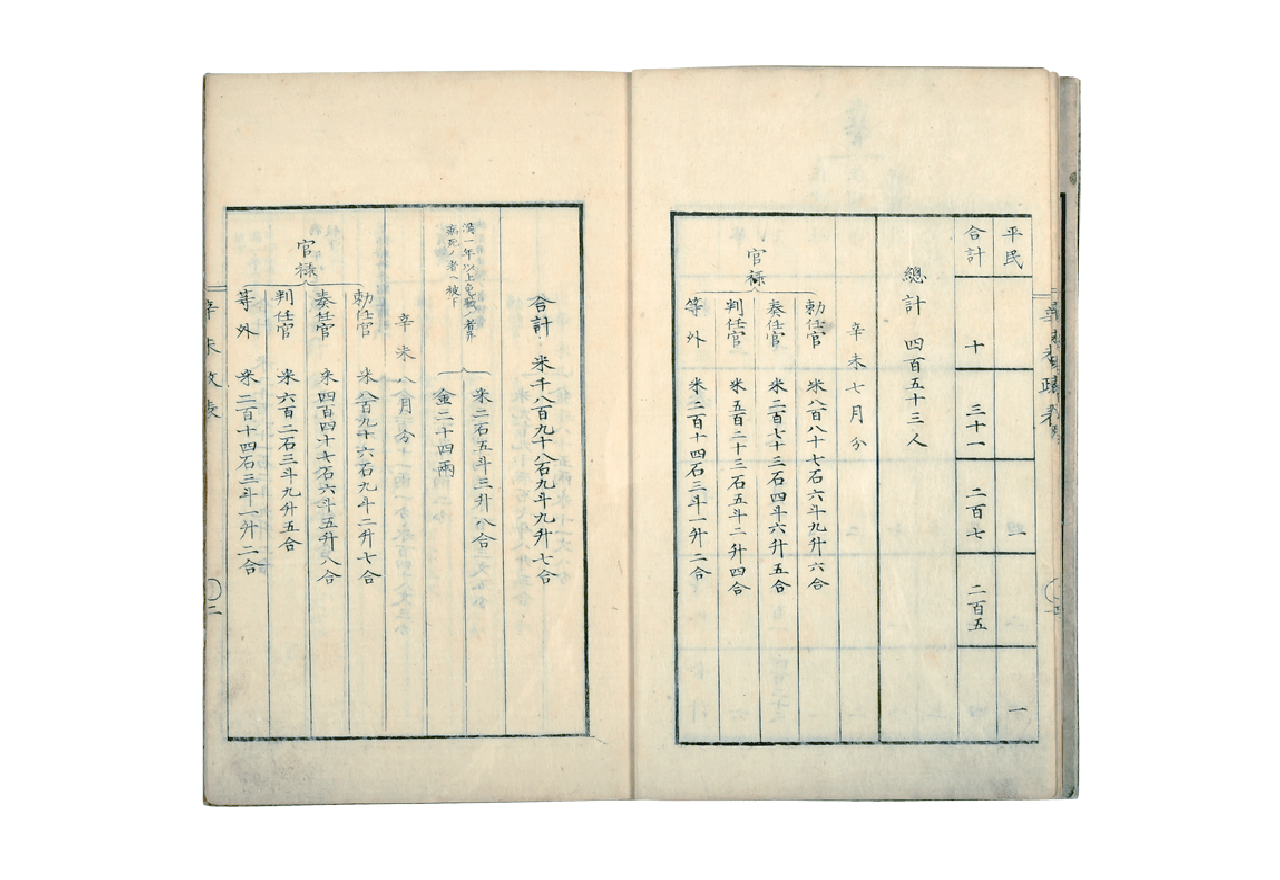 平民 一
合計 十 三十一 二百七 二百五
總計 四百五十三人
辛未七月分
官禄
勅任官 米八百八十七石六斗九升六合
奏任官 米二百七十三石四斗六升五合
判任官 米五百二十三石五斗二升四合
等外 米二百十四石三斗一升二合
合計 米千八百九十八石九斗九升七合
満一年以上免職ノ者并
病死ノ者ヘ被下
米二石五斗三升八合
金二十四両
辛未八月分
官禄
勅任官 米八百九十六石九斗二升七合
奏任官 米四百四十七石六斗五升八合
判任官 米六百二石三斗九升五合
等外 米二百十四石三斗一升二合
辛未政表
二